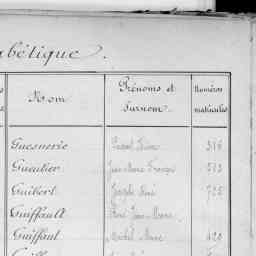 bétique.
Nom
Prénoms et
Surnom.
Numéros
matricules
Guesnerie
316
Gueulier Jean Marie François 513
Guibert Joseph René 725
Guiffault René Jean Marie
Guiffaut Michel Marie 420